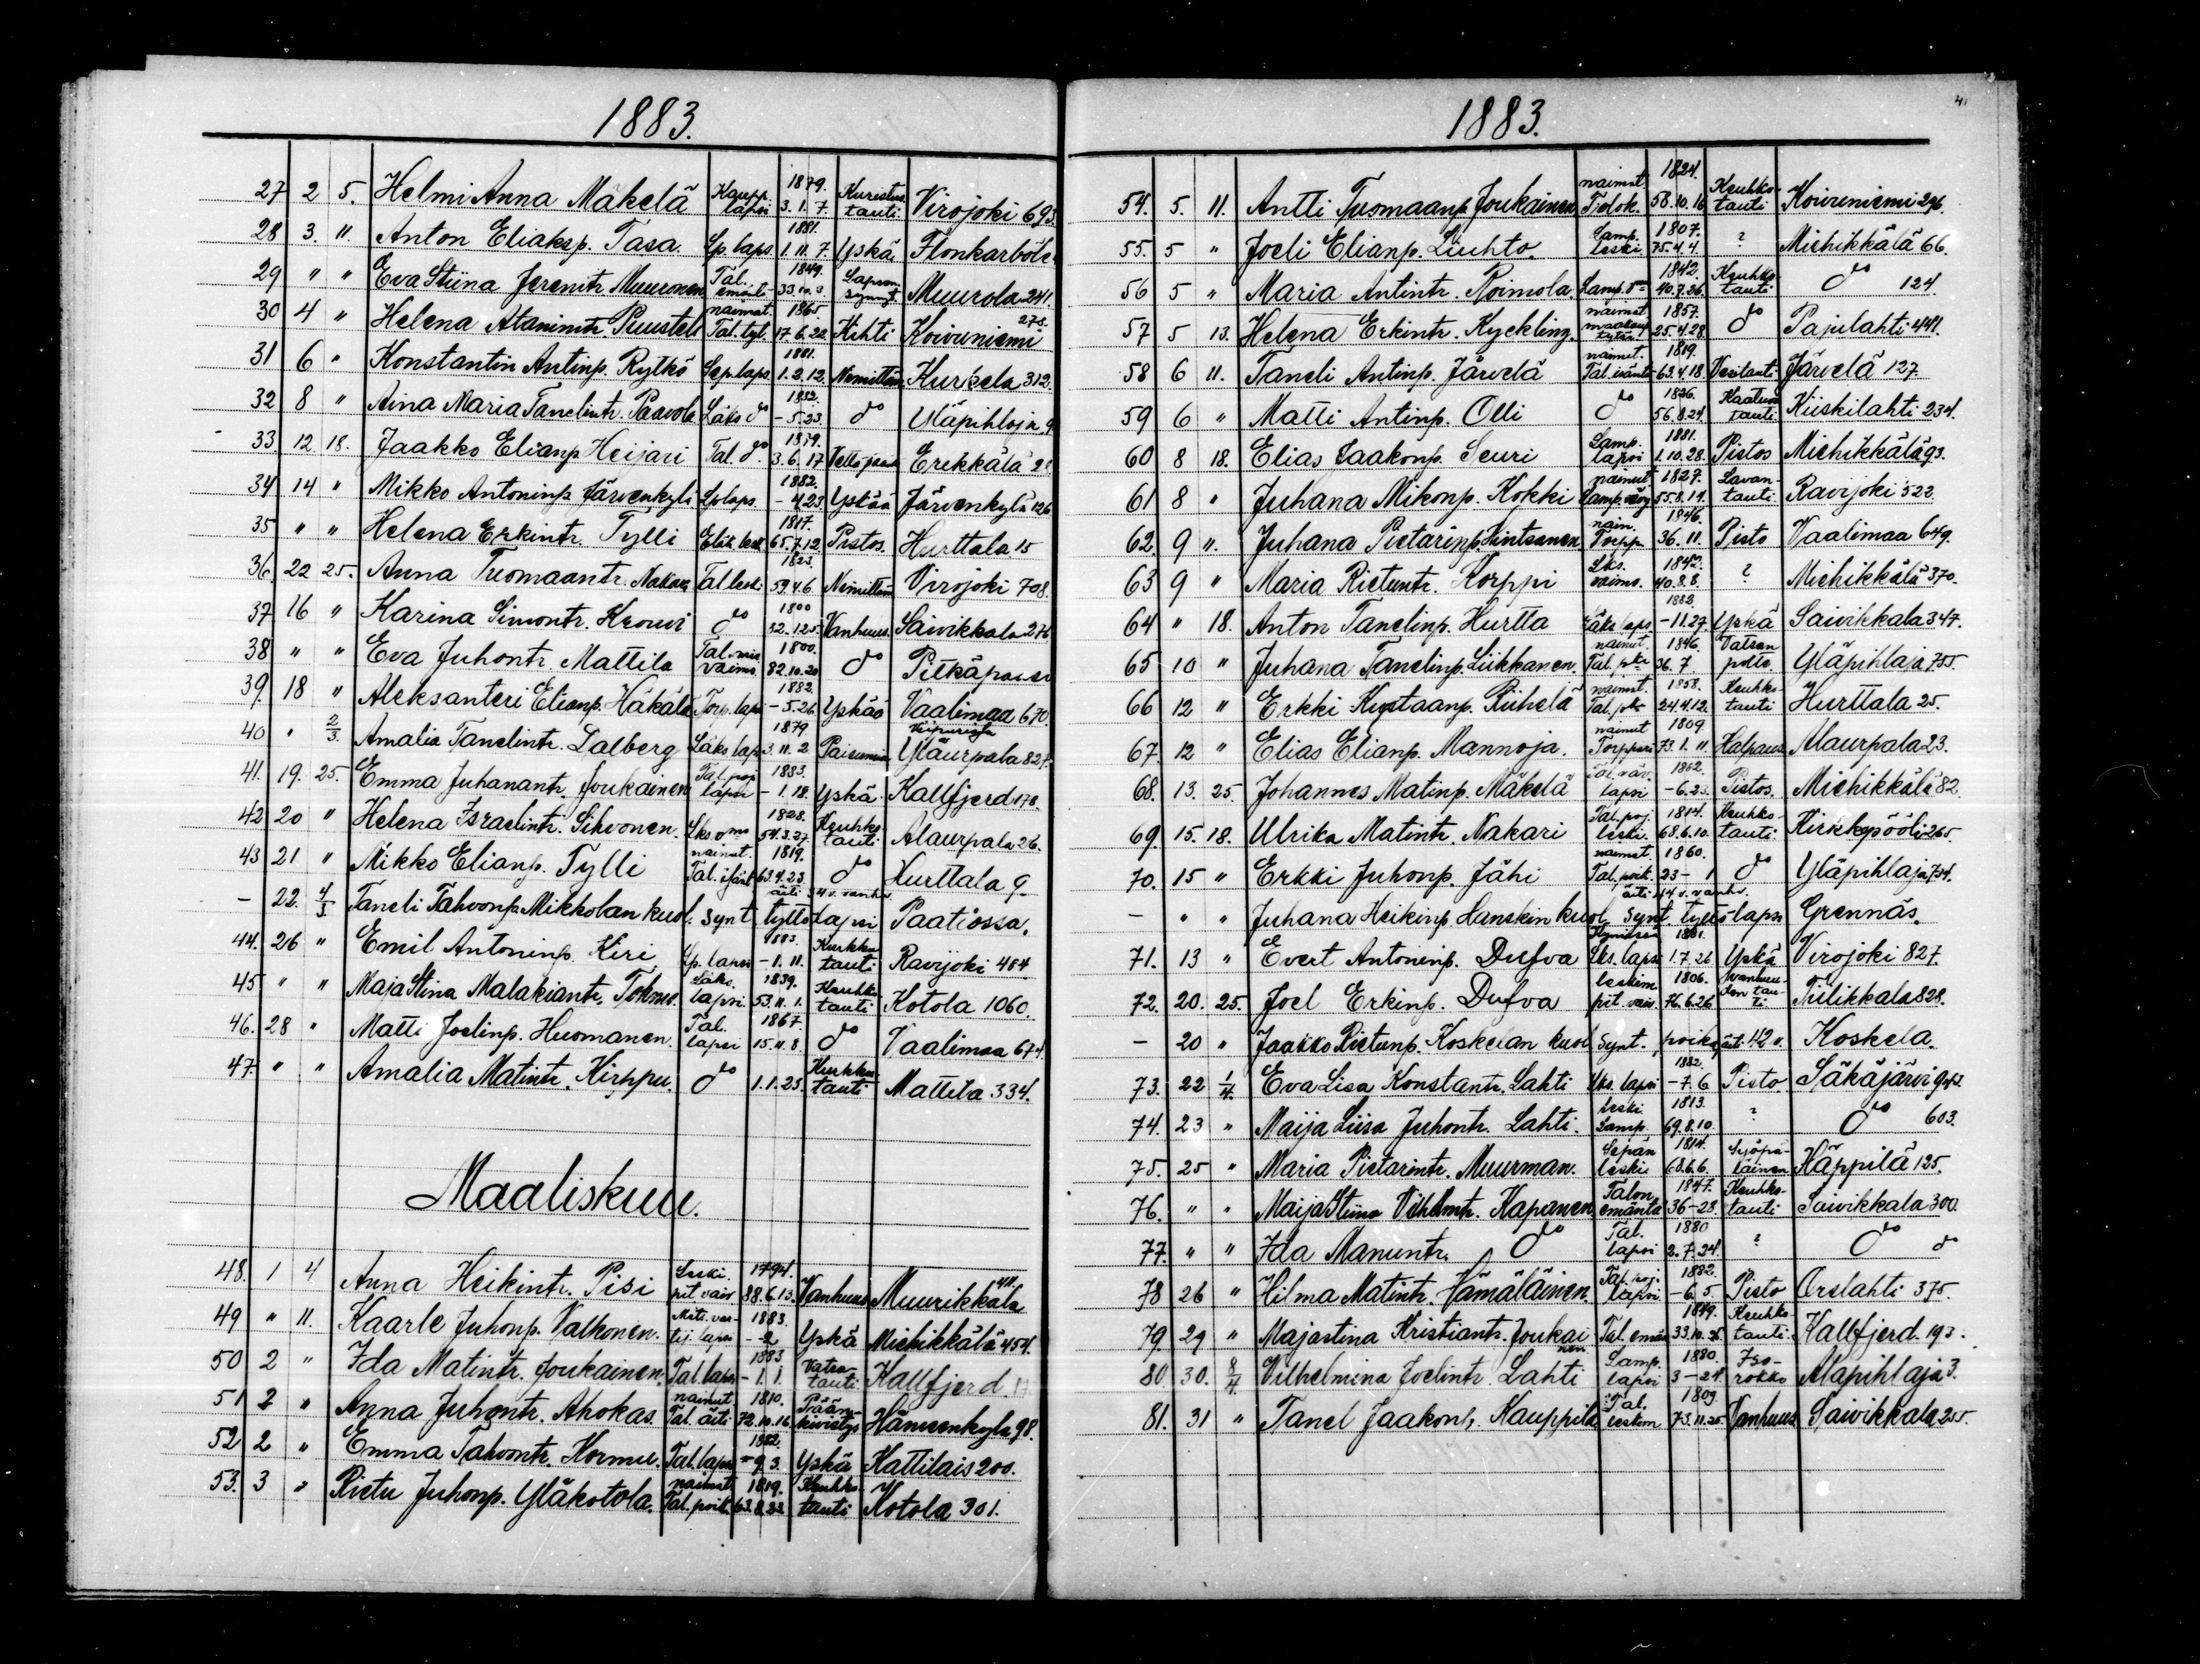 1883.
27 2 5. Helmi Anna Mäkelä Kaupp. lapsi 1879. 3.1.7 Kuristus tauti Virojoki 693.
28 3. " Anton Eliaksp. Tasa. Lp. laps. 1881. 1.11.7 Yskä
29 " " Eva Stiina Jeremtr. Muuronen Tal. emänt. 1849. 33.10.3 Lapsen synnyt. Muurola 241.
30 4 " Helena Ataminntr. Puusteli naimat. Tal. tyt. 1865. 17.6.22 Kihti Koivuniemi 273.
31 6 " Konstantin Antinp. Rytkö Sep. laps. 1881. 1.2.12. Nimittäm. Kurkela 312.
32 8 " Aina Maria Tanelintr. Paavola Läks do 1882. - 5.23. do Yläpihlaja 9
33. 12 18. Jaakko Elianp. Heijari Tal. do 1879. 3.6.17 Erekkälä
34 14 " Mikko Antoninp. Järvenkylä Lp laps. 1882. - 4.23 Yskää Järvenkylä 126
35 " " Helena Erkintr. Tylli Elät. lesk 1817. 65.7.12 Pistos. Hurttala 15
36 22 25. Anna Tuomaantr. Nakari Tal leski 1823. 59.4.6 Nimittäm Virojoki 708.
37 16 " Karina Simontr. Krouvi do 1800 82.1.25 Vanhuus. Saivikkala 276
38 " " Eva Juhontr. Mattila Tal. vaimo 1800. 82.10.20 do Pitkäpaasi
39. 18 " Aleksanteri Elianp. Häkälä Torp. laps 1882. - 5.26 Yskää Vaalimaa 670.
40 " 2/3. Amalia Tanelintr. Dalberg Läks laps 1879 3.11.2 Paisumia Viipurissa Yläurpala 827.
41. 19. 25. Emma Juhanantr. Joukainen Tal. poj. lapsi 1883. - 1.18. Yskä. Kallfjerd 178.
42 20 " Helena Israelintr. Sihvonen. Lks vmo 1828. 54.3.27 Keuhko tauti Alaurpala 26.
43 21 " Mikko Elianp. Tylli naimat. Tal. isänt 1819. 63.4.23. do Hurttala 9.
- 22. 4/3 Taneli Tahvonp. Mikkolan kuol. synt tyttö lapsi äiti 34 v. vanha Paatiossa.
44. 26 " Emil Antoninp. Kiri Lp. lapsi 1883. - 1.11. Kurkku tauti Ravijoki 484
45 " " Maja Stina Malakiantr. Läks. lapsi 1839. 53.11.1. Keuhko tauti Kotola 1060.
46. 28 " Matti Joelinp. Huomanen. Tal. lapsi 1867. 15.11.8. do Vaalimaa 674.
47. " " Amalia Matintr. Kirppu. do 1.1.25. Kurkku tauti Mattila 334.
Maaliskuu.
48. 1 4 Anna Heikintr. Pisi Leski. pit vaiv 1794. 88.6.13. Vanhuus Muurikkala
49 " 11. Kaarle Juhonp. Valkonen. Mets. var- tij. lapsi 1883. - - 2 Yskä Miehikkälä 454.
50 2 " Ida Matintr. Joukainen. Tal laps 1883 - 1.1. Vatsa- tauti Kallfjerd
51 2 " Anna Juhontr. Ahokas. naimat Tal. äiti 1810. 72.10.16 Pään- kivistys Hämeenkylä 98.
52 2 " Emma Tahvontr. Kormu. Tal. lapsi 1882. - 9.3. Yskä Kattilais 200.
53. 3 " Pietu Juhonp. Yläkotola. naimat Tal. poik 1819. 63.8.22 Keuhko- tauti Kotola 301.
41
1883.
54. 5. 11. Antti Tuomaanp. Joukainen naimat. Tal ok. 1824. 58.10.16 Keuhko- tauti Koivuniemi 296.
55. 5 " Joeli Elianp. Liuhto. Lamp. leski. 1807. 75.4.4 ? Miehikkälä 66.
56 5 " Maria Antintr. Roimola. Lamp. vmo 1842. 40.7.26. Keuhko- tauti do 124.
57 5 13. Helena Erkintr. Kyckling. naimat. maakaup tytär 1857. 25.4.28 do Pajulahti 441.
58 6 11. Taneli Antinp. Järvelä naimat. Tal. isänt. 1819. 63.4.18 Vesitauti Järvelä 127.
59 6 " Matti Antinp. Olli do 1826. 56.8.24. Kaatuva tauti Kiiskilahti 234.
60 8 18. Elias Jaakonp. Seuri Lamp. lapsi 1881. 1.10.28. Pistos Miehikkälä 93.
61 8 " Juhana Mikonp. Kokki naimat Lamp. 1827. 55.8.14. Lavan- tauti Ravijoki 522.
62 9 ". Juhana Pietarinp. Sintsanen naim. Torpp. 1846. 36.11. Pisto Vaalimaa 649.
63 9 " Maria Pietuntr. Korppi Lks. vaimo. 1842. 40.8.8. ? Miehikkälä 370.
64 " 18. Anton Tanelinp. Hurtta Läks laps 1882. - 11.27. Yskä Saivikkala 347.
65 10 " Juhana Tanelinp. Liikkanen. naimat. Tal. pka 1846. 36.7. Vatsan polte. Yläpihlaja 755.
66 12 " Erkki Kustaanp. Riihelä naimat. Tal. pka 1858. 24.4.12. Keuhko- tauti Hurttala 25.
67. 12 " Elias Elianp. Mannoja. naimat Torppari 1809 73.1.11. Halpaus. Alaurpala 23.
68. 13. 25. Johannes Matinp. Mäkelä Tal. väv. lapsi 1882. - 6.23. Pistos. Miehikkälä 82.
69. 15. 18. Ulrika Matintr. Nakari Tal. poj. leski. 1814. 68.6.10. Keuhko- tauti Kirkkopööli 265.
70. 15 " Erkki Juhonp. Jähi naimat. Tal. poik. 1860. 23 - 1 do Yläpihlaja 754.
- " " Juhana Heikinp. Hanskin kuol synt. tyttö-lapsi äiti 44 v. vanha. Grennäs.
71. 13 " Evert Antoninp. Dufva Kymissä Lks. lapsi 1881. 1.7.26 Yskä Virojoki 827.
72. 20. 25. Joel Erkinp. Dufva leskim. pit. vaiv. 1806. 76.6.26 Vanhuu- den tau- ti Tiilikkala 828.
- 20 " Jaakko Pietunp. Koskelan kuol synt. poika äiti 42 v. Koskela.
73. 22 1/4. Eva Lisa Konstantr. Lahti Lks. lapsi 1882. - 7.6 Pisto. Säkäjärvi
74. 23 " Maija Liisa Juhontr. Lahti. leski Lamp. 1813. 69.8.10. ? do 603.
75. 25 " Maria Pietarintr. Muurman. Sepän leski 1814. 68.6.6. Syöpä- läinen Häppilä 125.
76. " " Maija Stiina Vilhlmtr. Kapanen Talon emäntä 1847. 36-28. Keuhko- tauti Saivikkala 300.
77. " " Ida Manuntr. do Tal. lapsi 1880 2.7.24. ? do do
78 26 " Hilma Matintr. Hämäläinen. Tal. poj. lapsi 1882. - 6.5. Pisto Orslahti 375.
79. 29 " Majastina Kristiantr. Joukai nen Tal. emän 1849. 33.10.26. Keuhko tauti. Kallfjerd. 193.
80. 30. 8/4. Vilhelmina Joelintr. Lahti Lamp. lapsi 1880. 3 - 24 Iso- rokko Alapihlaja 3.
81. 31 " Tanel Jaakonp. Kauppila Tal. leskim 1809. 73.11.25. Vanhuus Saivikkala 255.